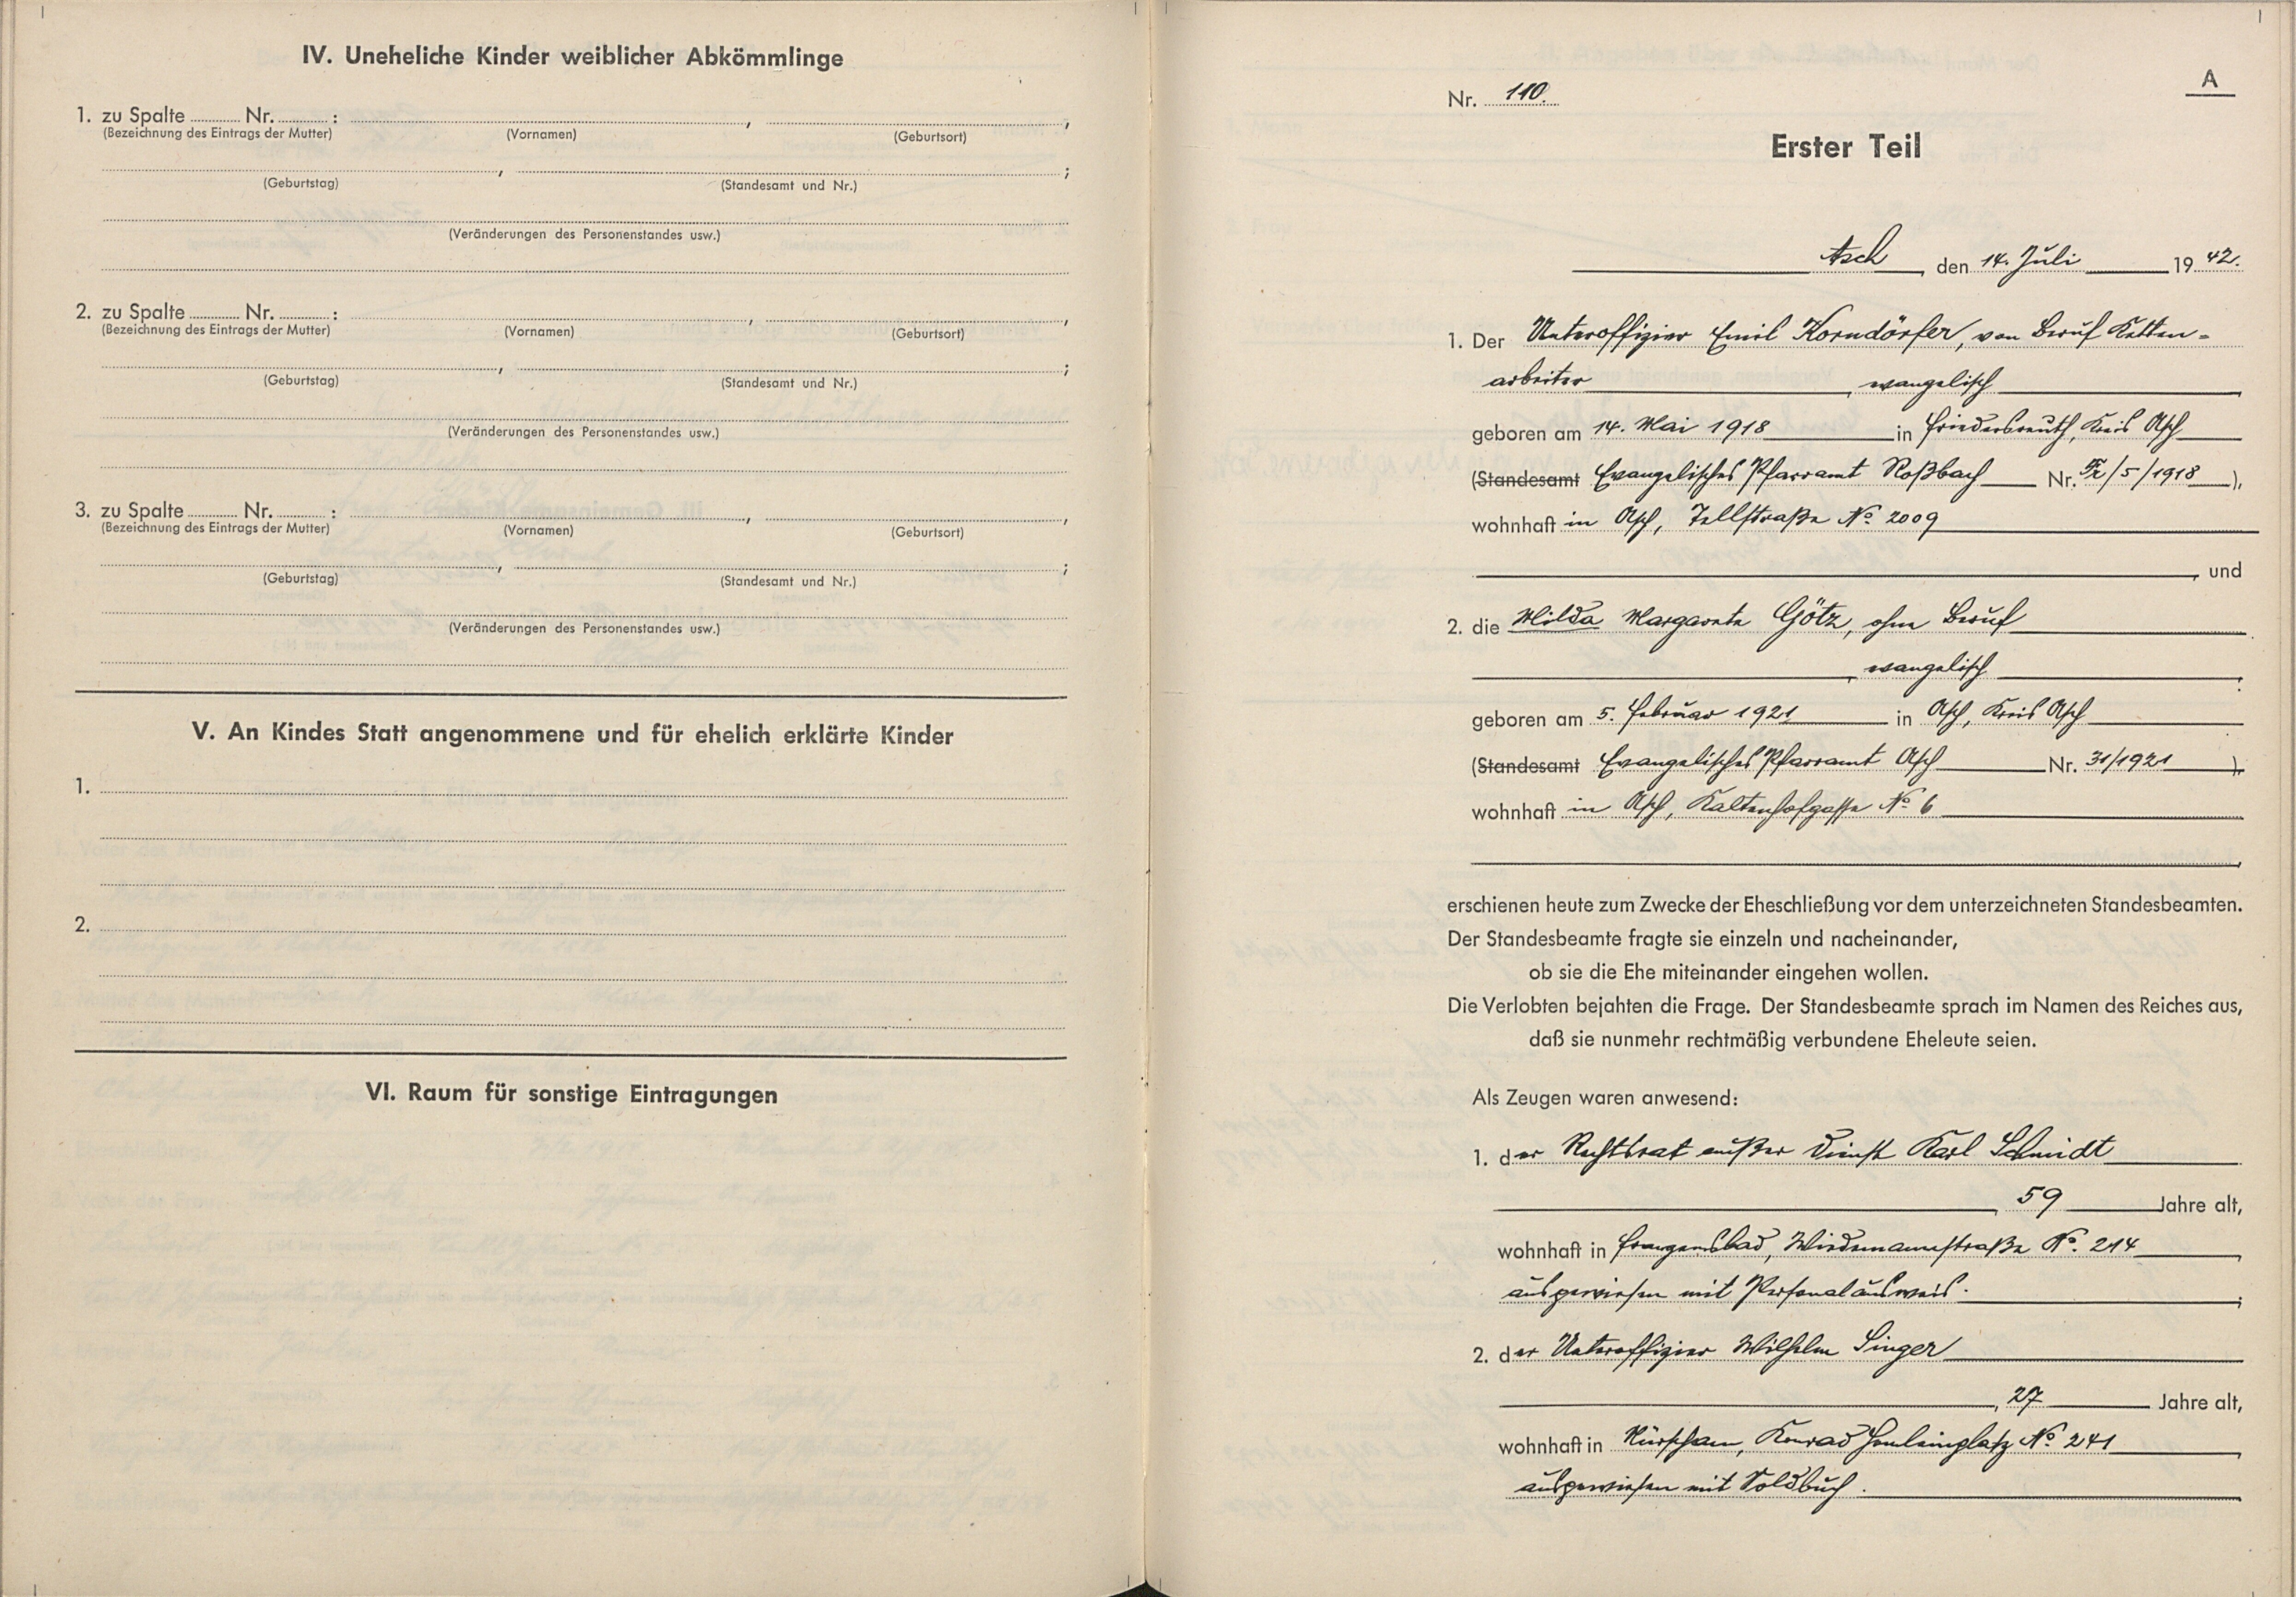 IV. Uneheliche Kinder weiblicher Abkömmlinge
1. zu Spalte ............ Nr. ............ :
(Bezeichnung des Eintrags der Mutter) (Vornamen) , (Geburtsort) ,
(Geburtstag) , (Standesamt und Nr.) ;
(Veränderungen des Personenstandes usw.)
2. zu Spalte ............ Nr. ............ :
(Bezeichnung des Eintrags der Mutter) (Vornamen) , (Geburtsort) ,
(Geburtstag) , (Standesamt und Nr.) ;
(Veränderungen des Personenstandes usw.)
3. zu Spalte ............ Nr. ............ :
(Bezeichnung des Eintrags der Mutter) (Vornamen) , (Geburtsort) ,
(Geburtstag) , (Standesamt und Nr.) ;
(Veränderungen des Personenstandes usw.)
V. An Kindes Statt angenommene und für ehelich erklärte Kinder
1.
2.
VI. Raum für sonstige Eintragungen
A
Nr. 110.
Erster Teil
Asch, den 14. Juli 1942.
1. Der Unteroffizier Emil Korndörfer, von Beruf Ketten=
arbeiter, evangelisch
geboren am 14. Mai 1918 in Friedersreuth, Kreis Asch
(Standesamt Evangelisches Pfarramt Roßbach Nr. Fr/5/1918),
wohnhaft in Asch, Tellstraße No 2009
, und
2. die Milda Margareta Götz, ohne Beruf
, evangelisch
geboren am 5. Februar 1921 in Asch, Kreis Asch
(Standesamt Evangelisches Pfarramt Asch Nr. 31/1921),
wohnhaft in Asch, Kaltenhofgasse No 6
erschienen heute zum Zwecke der Eheschließung vor dem unterzeichneten Standesbeamten.
Der Standesbeamte fragte sie einzeln und nacheinander,
ob sie die Ehe miteinander eingehen wollen.
Die Verlobten bejahten die Frage. Der Standesbeamte sprach im Namen des Reiches aus,
daß sie nunmehr rechtmäßig verbundene Eheleute seien.
Als Zeugen waren anwesend:
1. der Rechtsrat außer Dienst Karl Schmidt
, 59 Jahre alt,
wohnhaft in Franzensbad, Wiedemannstraße No. 214
ausgewiesen mit Personalausweis. ;
2. der Unteroffizier Wilhelm Singer
, 27 Jahre alt,
wohnhaft in Nürschan, Konrad Henleinplatz No 241
ausgewiesen mit Soldbuch.